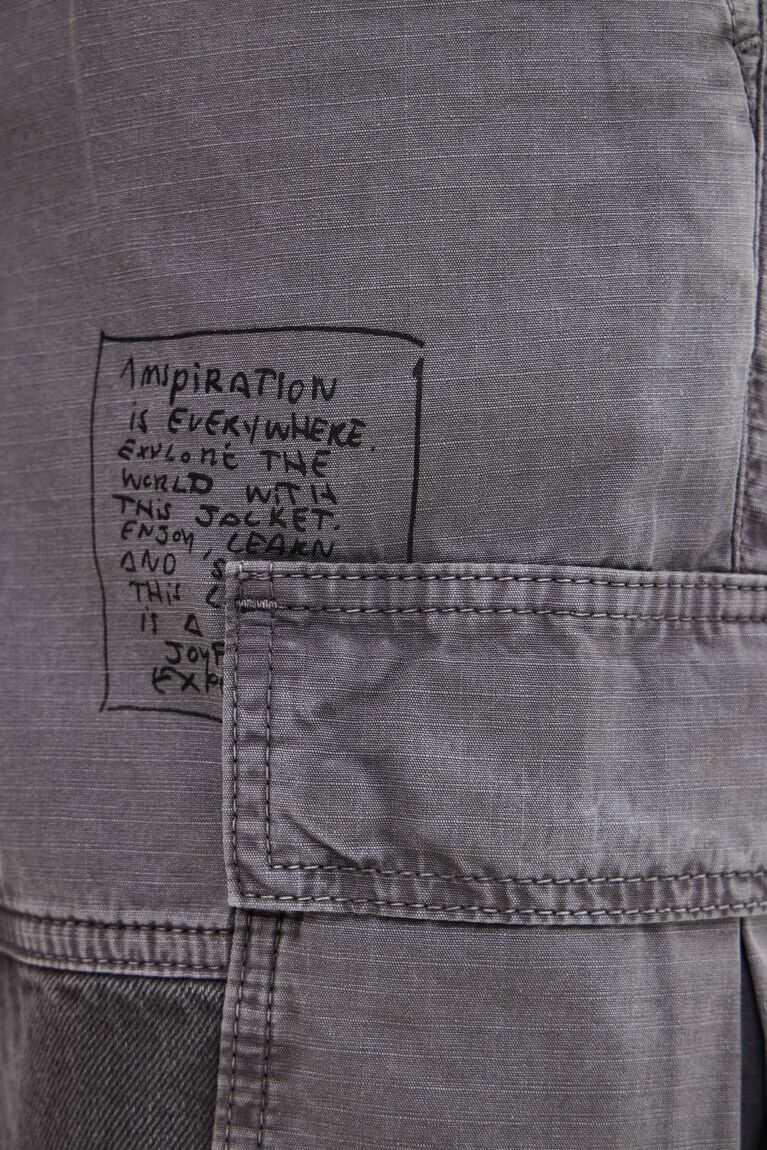 INSPiRATION
is EVERYWHERE.
EXPLORE THE
WORLD WITH
THiS JACKET.
ENJOY, LEARN
AND
THiS
is A